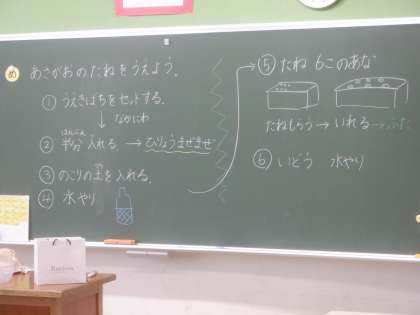 め あさがおのたねをうえよう。
① うえきばちをセットする。
↓ なかにわ
② 半分 入れる。→ ひりょうまぜまぜ
はんぶん
③ のこりの土を入れる。
④ 水やり
⑤ たね 6このあな
たねもらう → いれる →
⑥ いどう 水やり